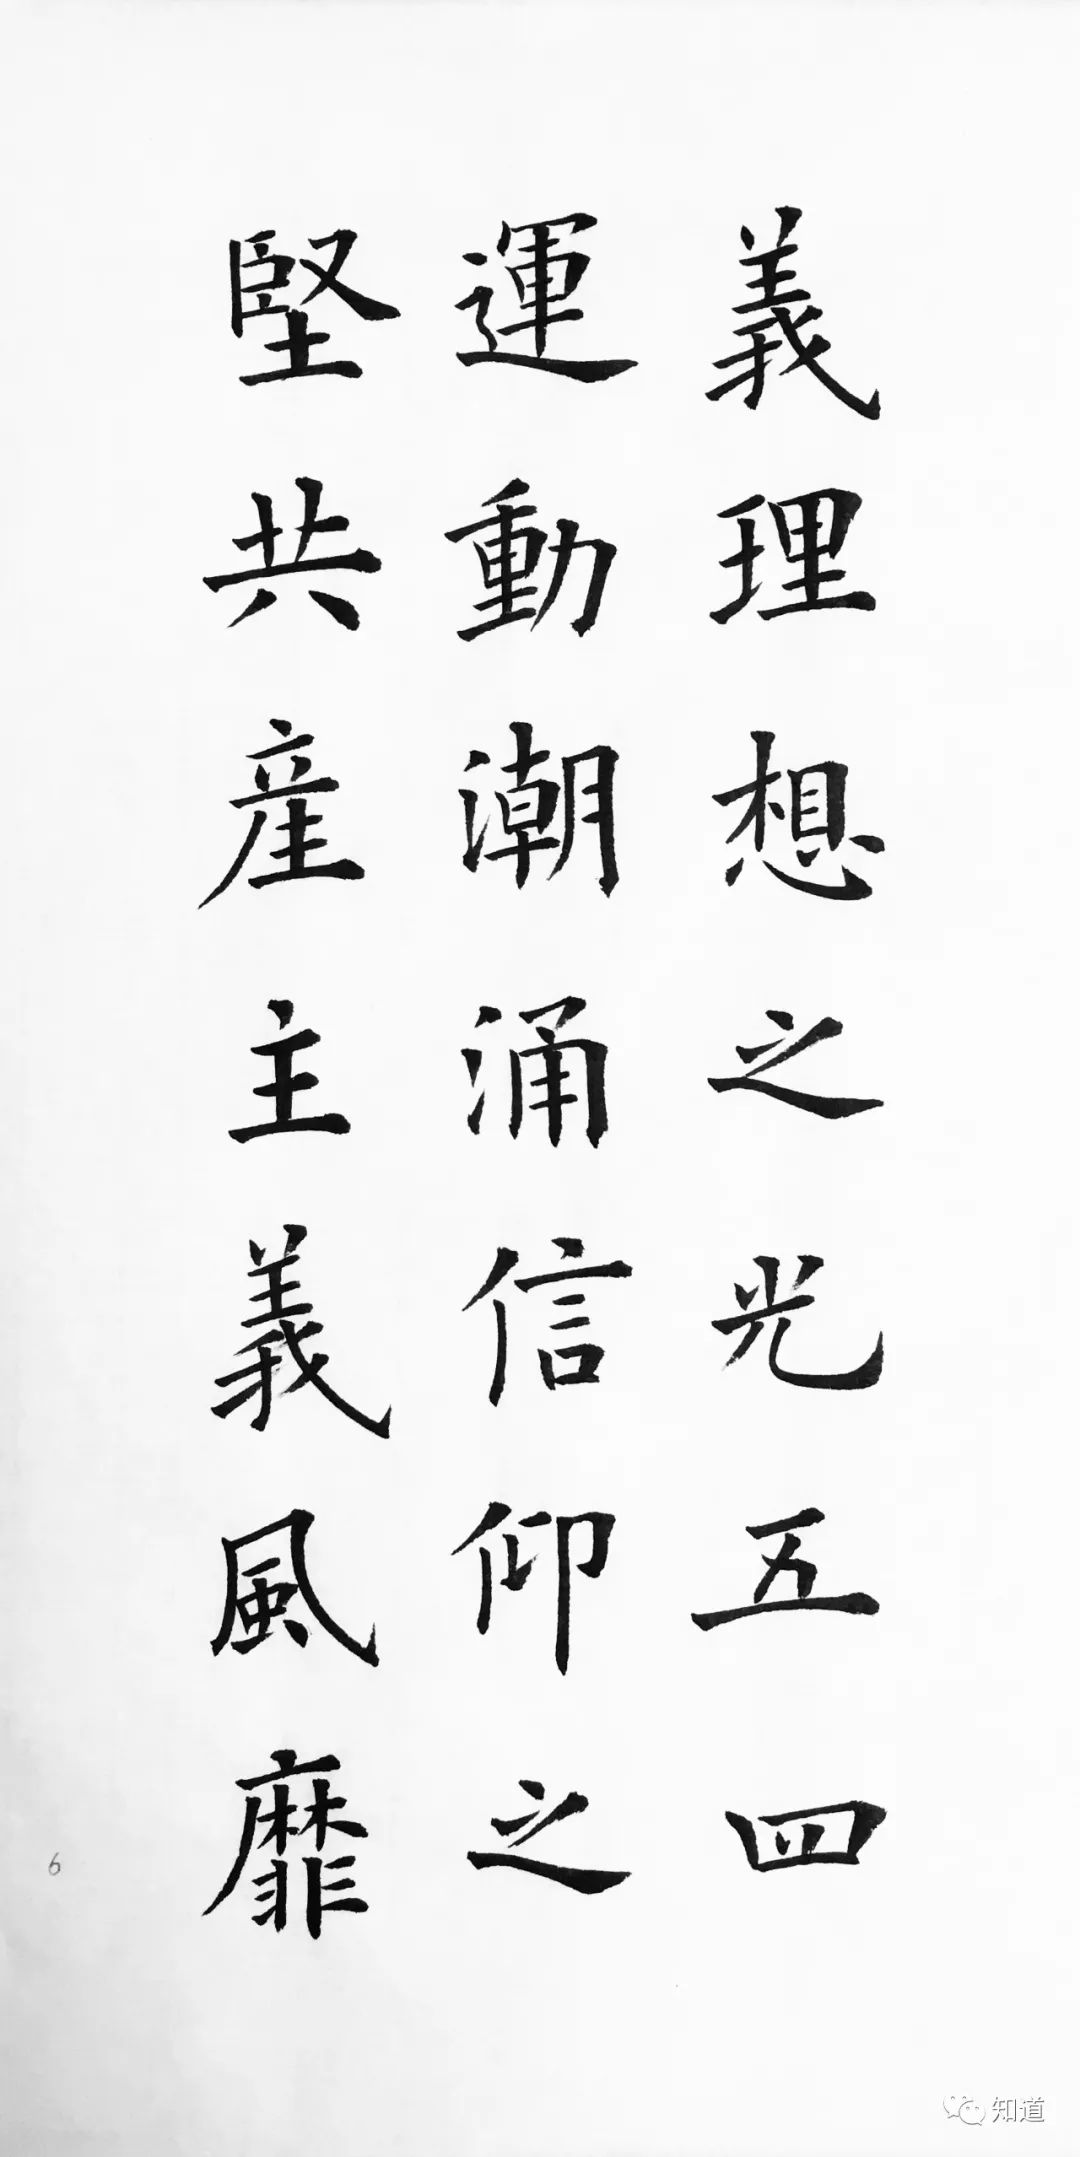 義理想之光五四
運動潮涌信仰之
堅共産主義風靡
6
知道